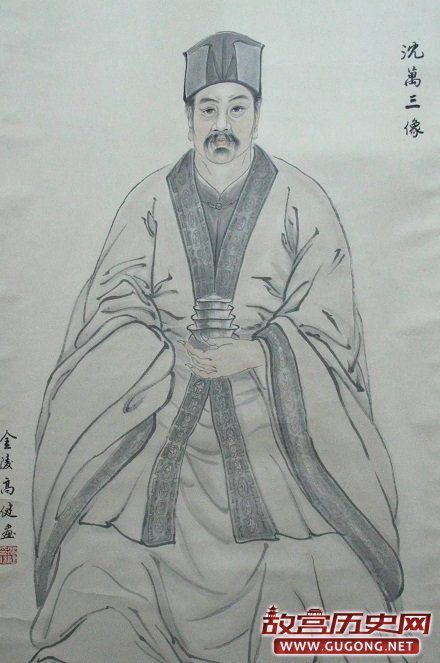 沈萬三像
金陵高健畫
故宫历史网
WWW.GUGONG.NET